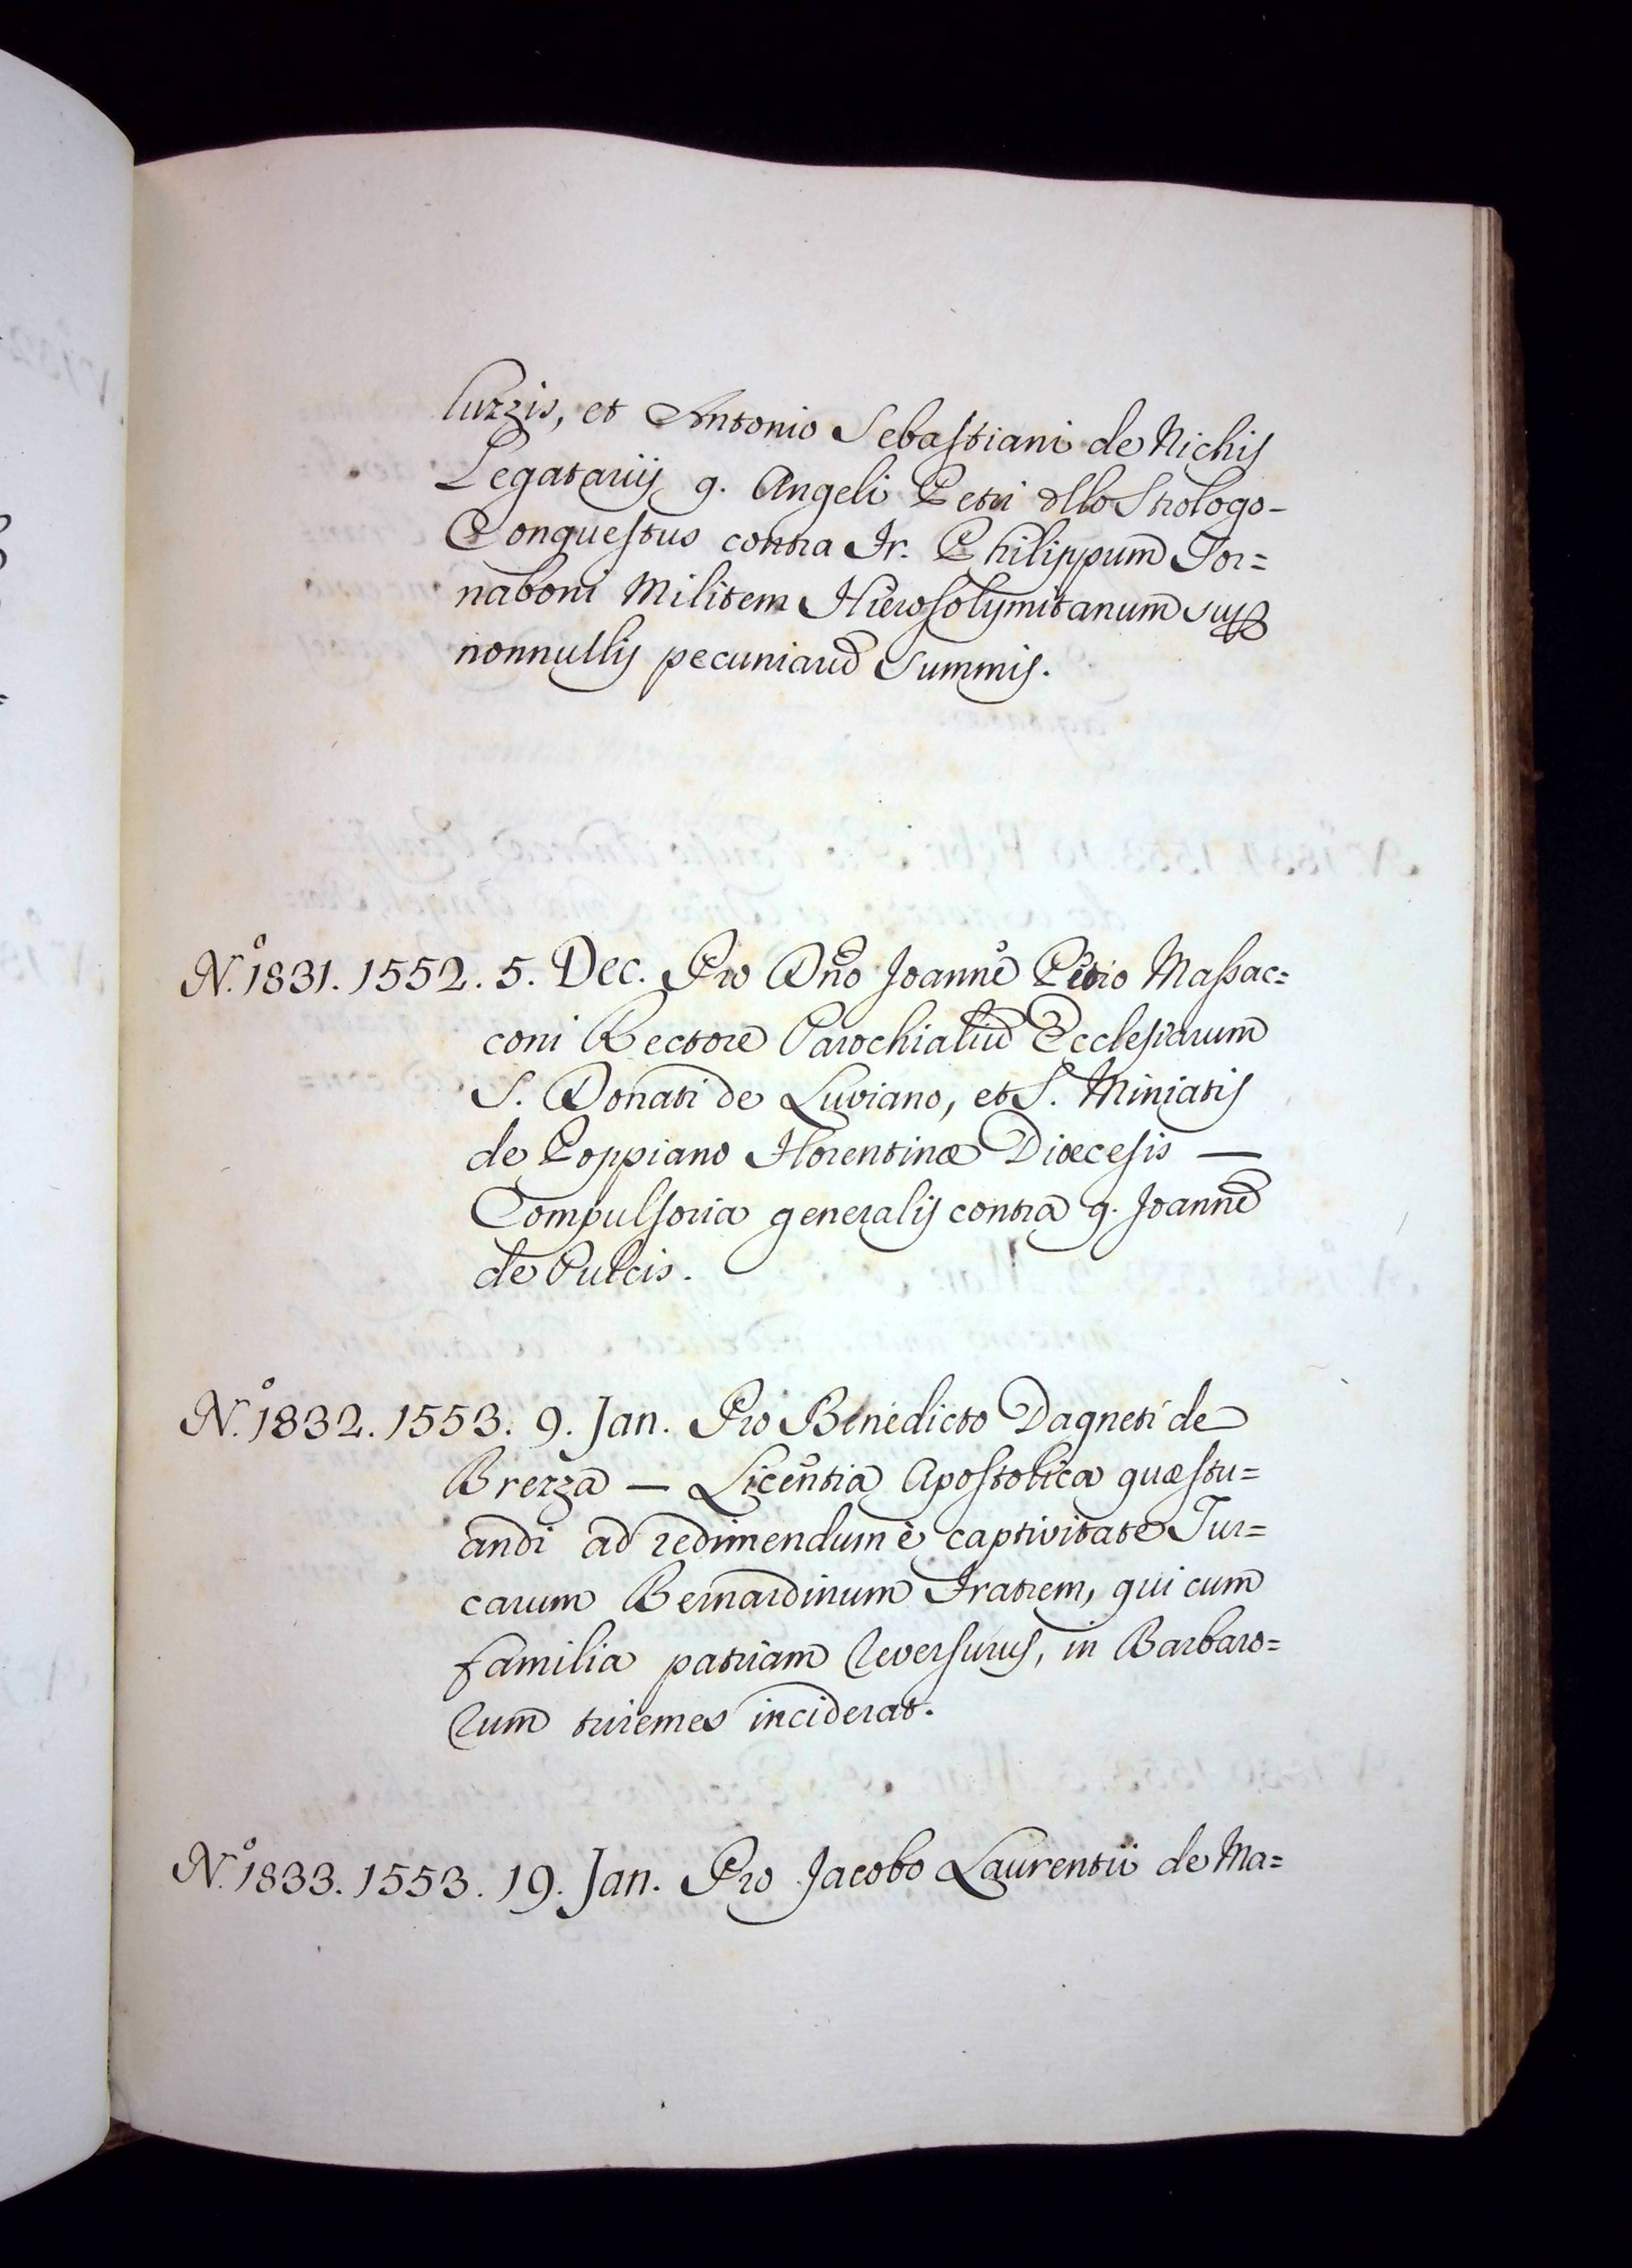 luzzis, et Antonio Sebastiani de Nichis
Legatariis q. Angeli Petri dllo Strologo-
Conquestus contra Fr. Philippum Tor=
naboni Militem Hierosolymitanum sup
nonnullis pecuniarū Summis.
N.º 1831. 1552. 5. Dec. Pro Dño Joanne Petro Massac=
coni Rectore Parochialiū Ecclesiarum
S. Donati de Luviano, et S. Miniatis
de Poppiano Florentinæ Diœcesis —
Compulsoria generalis contra q. Joannē
de Pulcis.
N.º 1832. 1553. 9. Jan. Pro Benedicto Dagneti de
Brezza — Licentia Apostolica quæstu=
andi ad redimendum è captivitate Tur=
carum Bernardinum Fratrem, qui cum
familia patriam reversurus, in Barbaro=
rum triremes inciderat.
N.º 1833. 1553. 19. Jan. Pro Jacobo Laurentii de Ma=